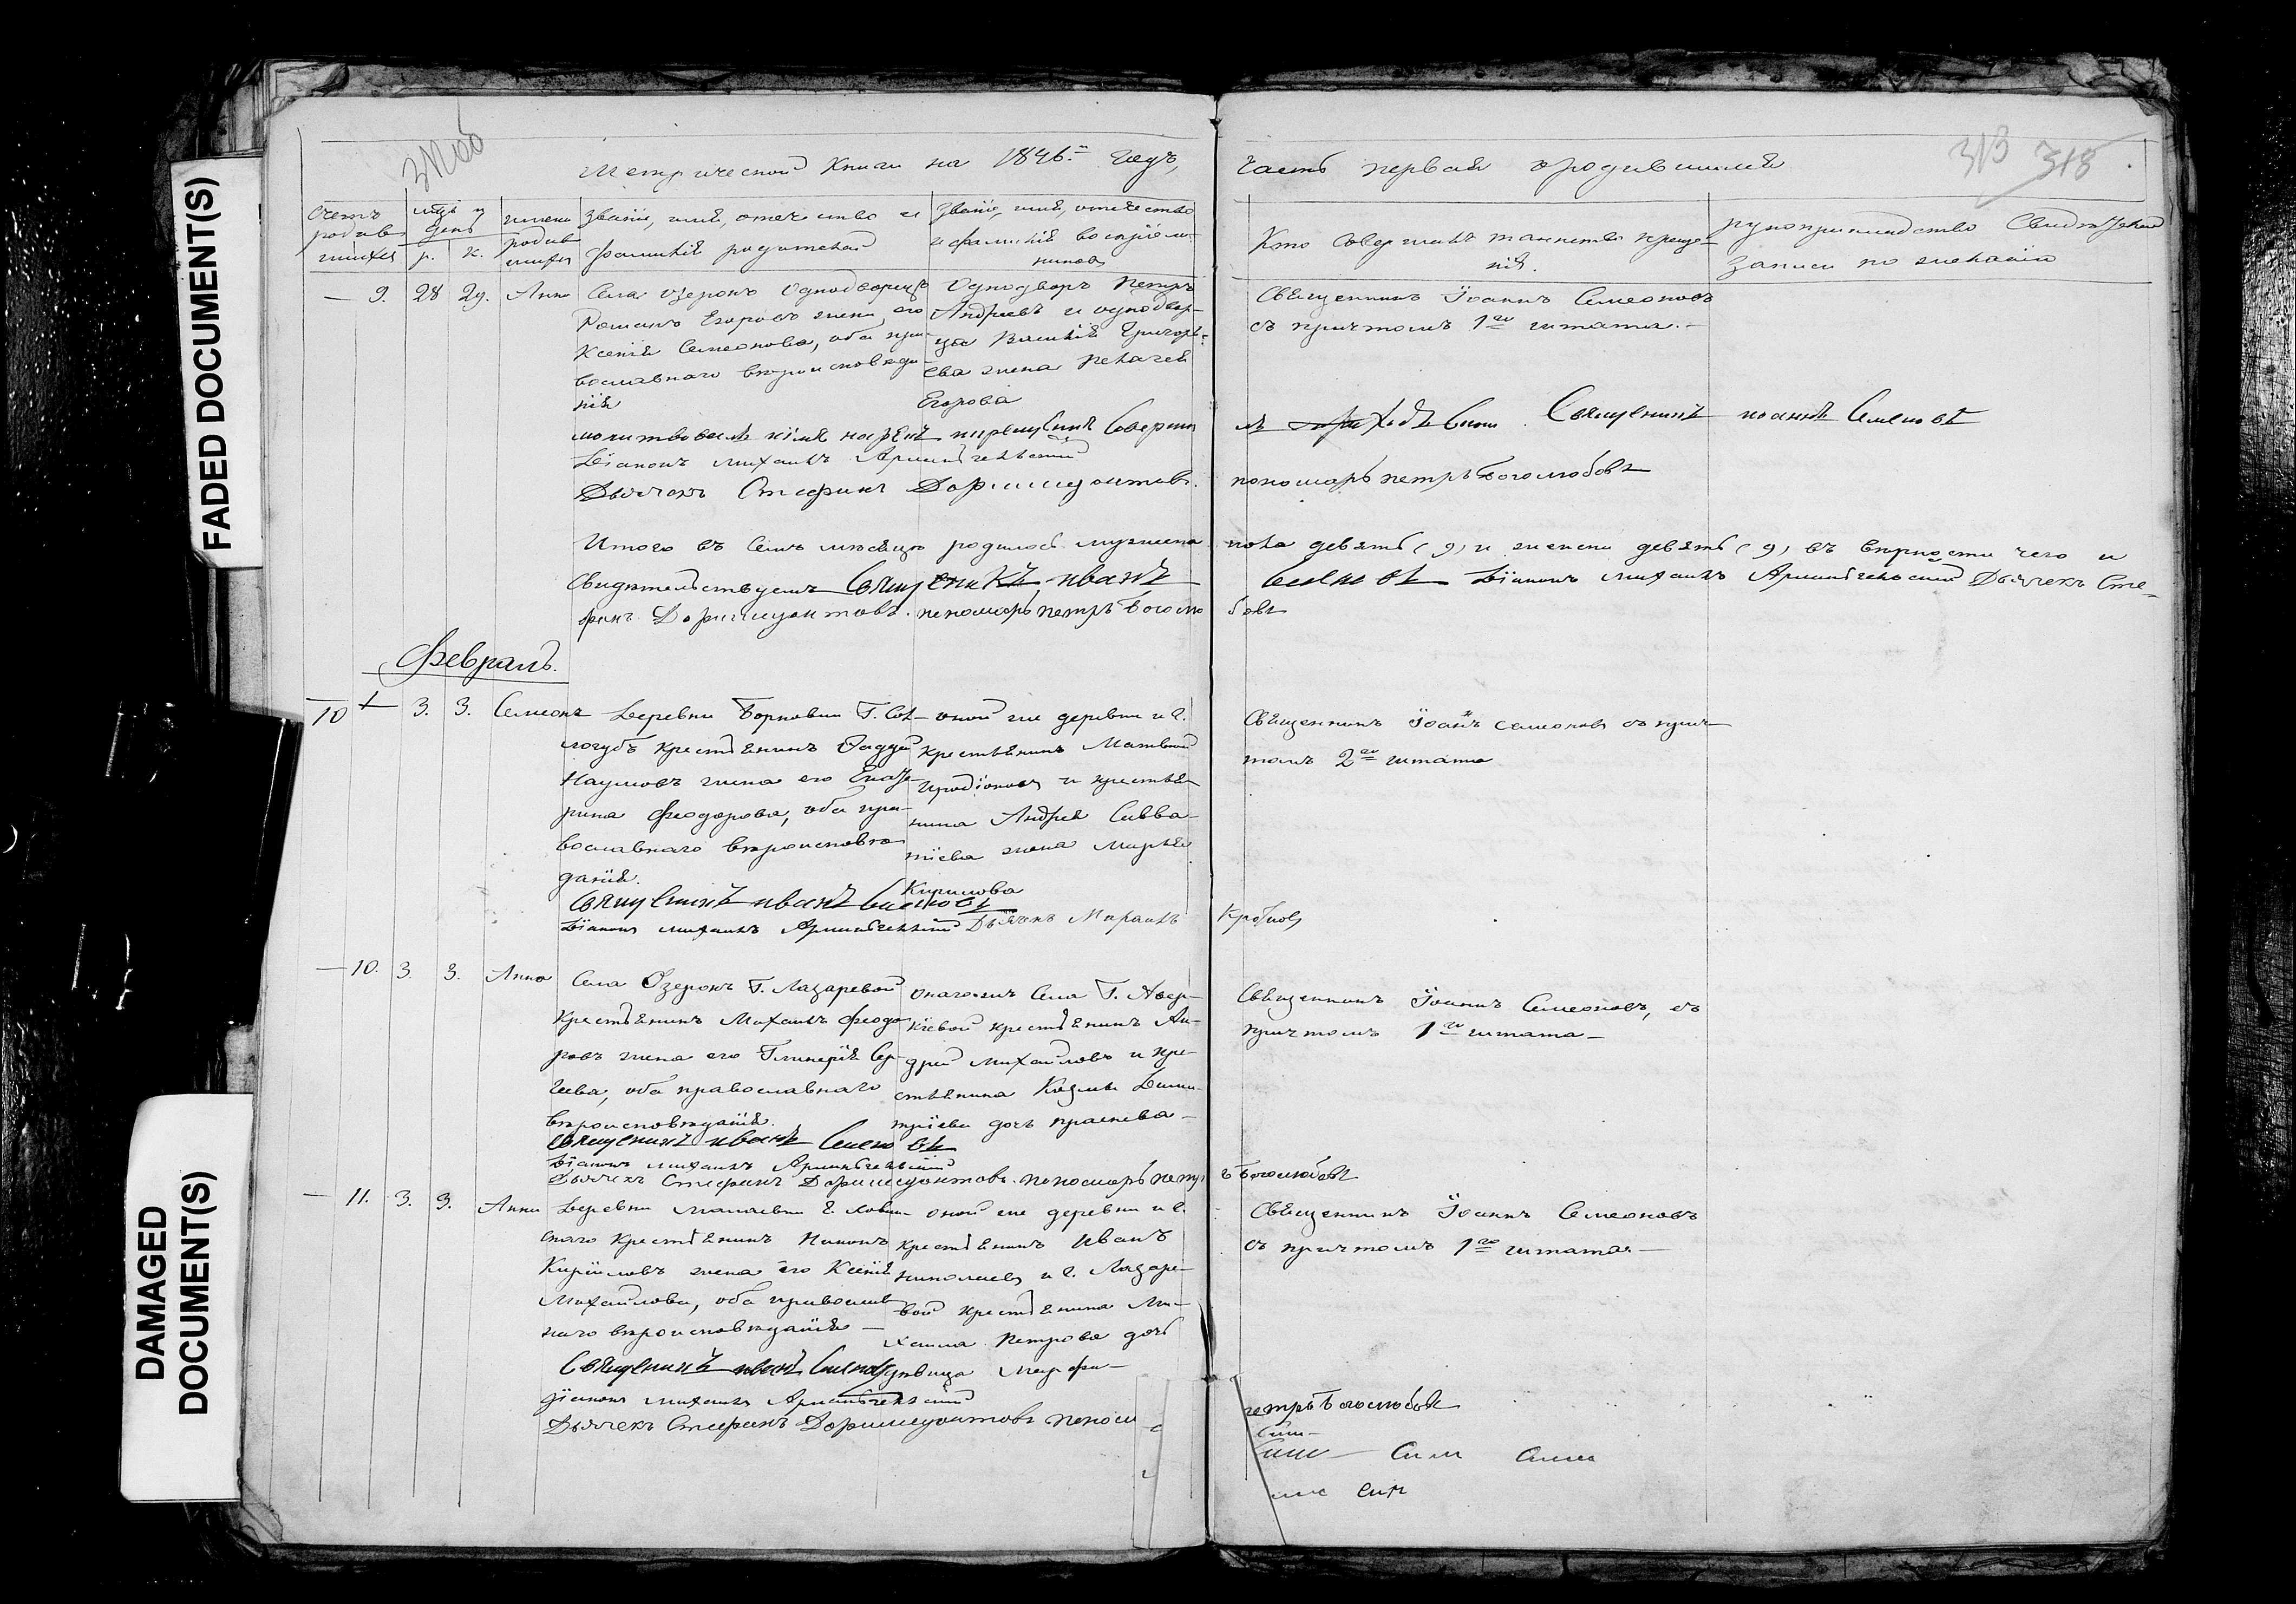 FADED DOCUMENT(S)
DAMAGED
DOCUMENT(S)
Метрической Книги на 1846й годъ,
Часть первая о родившихся
313 318
Счетъ родившихся
мѣсяцъ и день
р. к.
имена родившихся
Званіе, имя, отечество и
фамилія родителей
Званіе, имя, отечество
и фамилія воспріем-
никовъ
Кто совершалъ таинство креще-
нія.
рукоприкладство свидѣтелей
записи по желанію
— 9. 28 29. Анна
Села Озерокъ Однодворецъ
Романъ Егоровъ жена его
Ксенія Семеонова, оба пра-
вославнаго вѣроисповѣда-
нія
Однодворъ Петръ
Андреевъ и однодвор-
ца Василія Григорь-
ева жена Пелагея
Егорова
Священникъ Іоаннъ Семеоновъ
съ причтомъ 1го штата.—
молитвовалъ и имя нарекъ и крещеніе соверши
лъ Священникъ иоаннъ Семеновъ
Діаконъ Михаилъ
Дьячекъ Стефанъ Доримедонтовъ.
пономарь петръ Боголюбовъ
Итого въ семъ месяцѣ родилось мужеска
пола девять (9) и женска девять (9) въ верности чего и
свидетельствуемъ Священникъ иванъ
Семеновъ Діаконъ Михаилъ Дьячекъ Сте-
фанъ Доримедонтовъ. пономарь петръ Боголю
бовъ
Февраль.
10 — 3. 3. Семеонъ
Деревни Г. Сол-
логубъ крестьянинъ Фаддей
Наумовъ жена его Екате-
рина Феодорова, оба пра-
вославнаго вѣроисповѣ-
данія.
оной же деревни и г.
крестьянинъ Матвей
Иродіоновъ и крестья-
нина Андрея Савва-
тіева жена Марья
Кирилова
Священникъ Іоаннъ Семеоновъ съ прич-
томъ 2го штата
Священникъ иванъ Семеновъ
Діаконъ Михаилъ Дьячекъ Михаилъ
Кротковъ
— 10. 3. 3. Анна
Села Озерокъ Г. Лазаревой
Крестьянинъ Михаилъ Феодо-
ровъ жена его Гликерія Сер-
геева, оба православнаго
вѣроисповѣданія.
онаго жъ Села Г. Авер-
кіевой крестьянинъ Ан-
дрей Михайловъ и кре-
стьянина Козмы Дими-
тріева дочь Прасковья—
Священникъ Іоаннъ Семеоновъ, съ
причтомъ 1го штата—
священникъ иванъ Семеновъ
Діаконъ Михаилъ
Дьячекъ Стефанъ Доримедонтовъ. пономарь петр
ъ Боголюбовъ
— 11. 3. 3. Анна
Деревни г.
крестьянинъ Никонъ
Кириловъ жена его Ксенія
Михайлова, оба православ
наго вѣроисповѣданія —
оной же деревни и г.
крестьянинъ Иванъ
Николаевъ и г. Лазаре-
вой крестьянина Ми-
хаила Петрова дочь
дѣвица Марфа—
Священникъ Іоаннъ Семеоновъ
съ причтомъ 1го штата.—
Священникъ иванъ Семеновъ
Діаконъ Михаилъ
Дьячекъ Стефанъ Доримедонтовъ поном
петръ Боголюбовъ